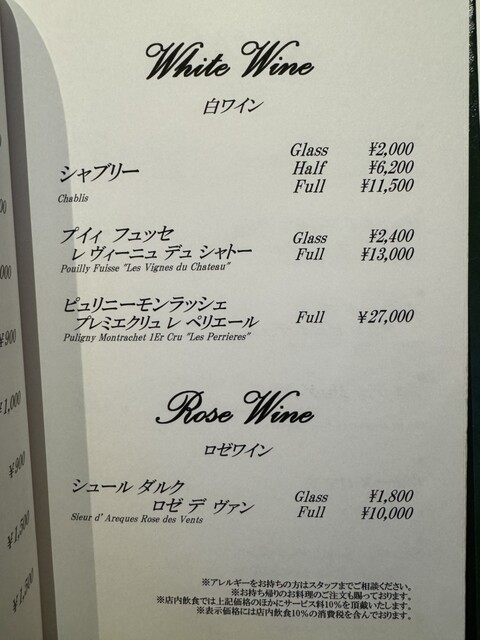 White Wine
白ワイン
Glass ¥2,000
シャブリー Half ¥6,200
Full ¥11,500
Chablis
プイィ フュッセ Glass ¥2,400
レ ヴィーニュ デュ シャトー Full ¥13,000
Pouilly Fuisse "Les Vignes du Chateau"
ピュリニーモンラッシェ
プレミエクリュ レ ペリエール Full ¥27,000
Puligny Montrachet 1Er Cru "Les Perrieres"
Rose Wine
ロゼワイン
シュール ダルク Glass ¥1,800
ロゼ デ ヴァン Full ¥10,000
Sieur d' Areques Rose des Vents
※アレルギーをお持ちの方はスタッフまでご相談ください。
※お持ち帰りのお料理のご注文も賜っております。
※店内飲食では上記価格のほかにサービス料10%を頂戴いたします。
※表示価格には店内飲食10%の消費税を含んでおります。
¥900
¥1,000
¥900
¥1,500
¥1,500